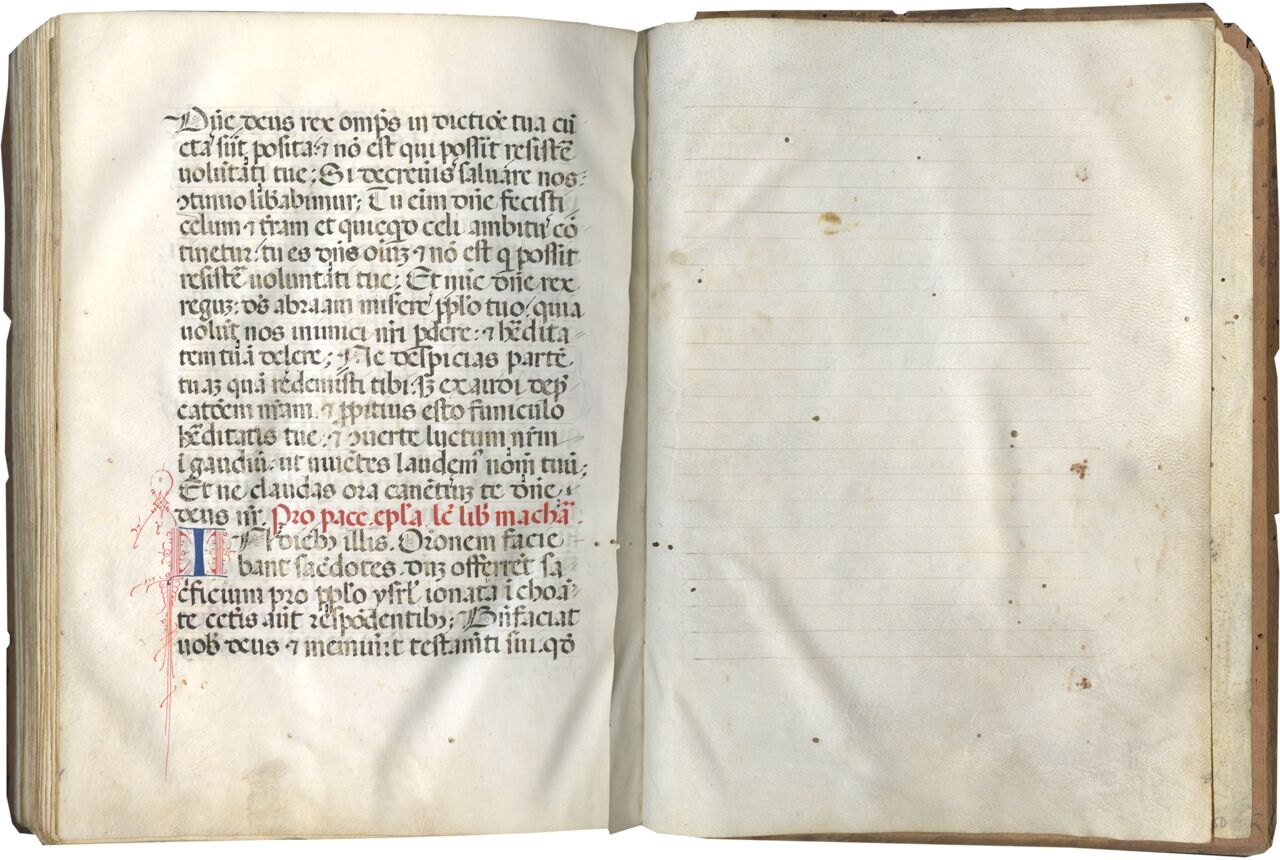 Dn̄e deus rex omp̄s in dictiōe tua cū
cta sūt posita: ⁊ nō est qui possit resistē
volūtati tue: Si decreūis salvare nos:
ↄtinuo lib̄abimur; Tu eim dn̄e fecisti
celum ⁊ t̄ram et quicqd celi ambitu cō
tinetur: tu es dn̄s oiuꝫ ⁊ nō est q possit
resistē voluntati tue: Et nūc dn̄e rex
reguꝫ: ds̄ abraam misere pp̄lo tuo: quia
volūt nos inimici nr̄i pdere: ⁊ hēdita
tem tuā delere; Ne despicias partē
tuaꝫ quā redemisti tibi: sꝫ exaudi dep̄
catōem nr̄am. ⁊ ppitius esto funiculo
hēditatis tue: ⁊ ↄuerte luctum nr̄m
i gaudiū: ut viuētes laudemꝰ nom̄ tuū:
Et ne claudas ora canētiuꝫ te dn̄e
deus nr̄. Pro pace. epl̄a. lc̄ lib̄ machā.
IN diebꝫ illis. Orōnem facie
bant sac̄dotes. duꝫ offerrēt sa
c̄ficium pro pp̄lo ysrl̄ ionata ichoā
te cet̄is aūt respōdentibꝫ; Bn̄faciat
vob̄ deus ⁊ memin̄it testam̄ti sui. qd̄